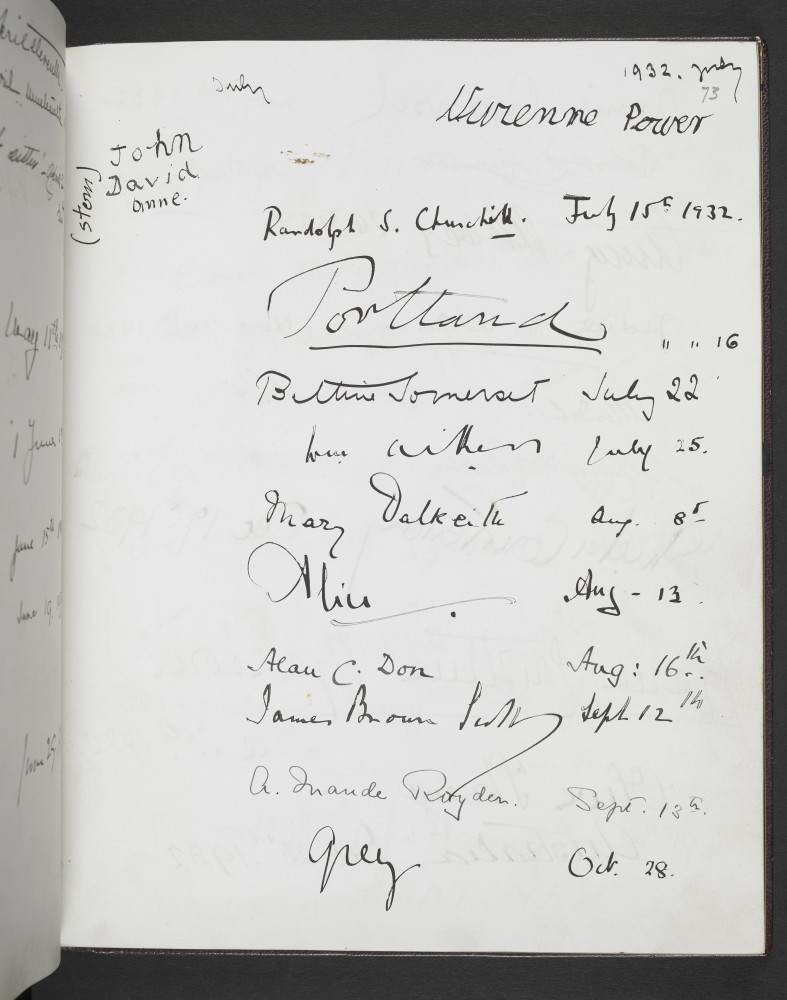 1932. July
73
July
Vivienne Power
John
David
Anne.
(stem)
Randolph S. Churchill. July 15th 1932.
Portland " " 16
Bettine Somerset July 22
Aitken July 25.
Mary Dalkeith Aug. 8th
Alice Aug - 13.
Alan C. Don Aug: 16th
James Brown Scott Sept 12th
A. Maude Royden. Sept. 13th.
Grey Oct. 28.
May 11th
1 June
June 15th
June 19.
June 25